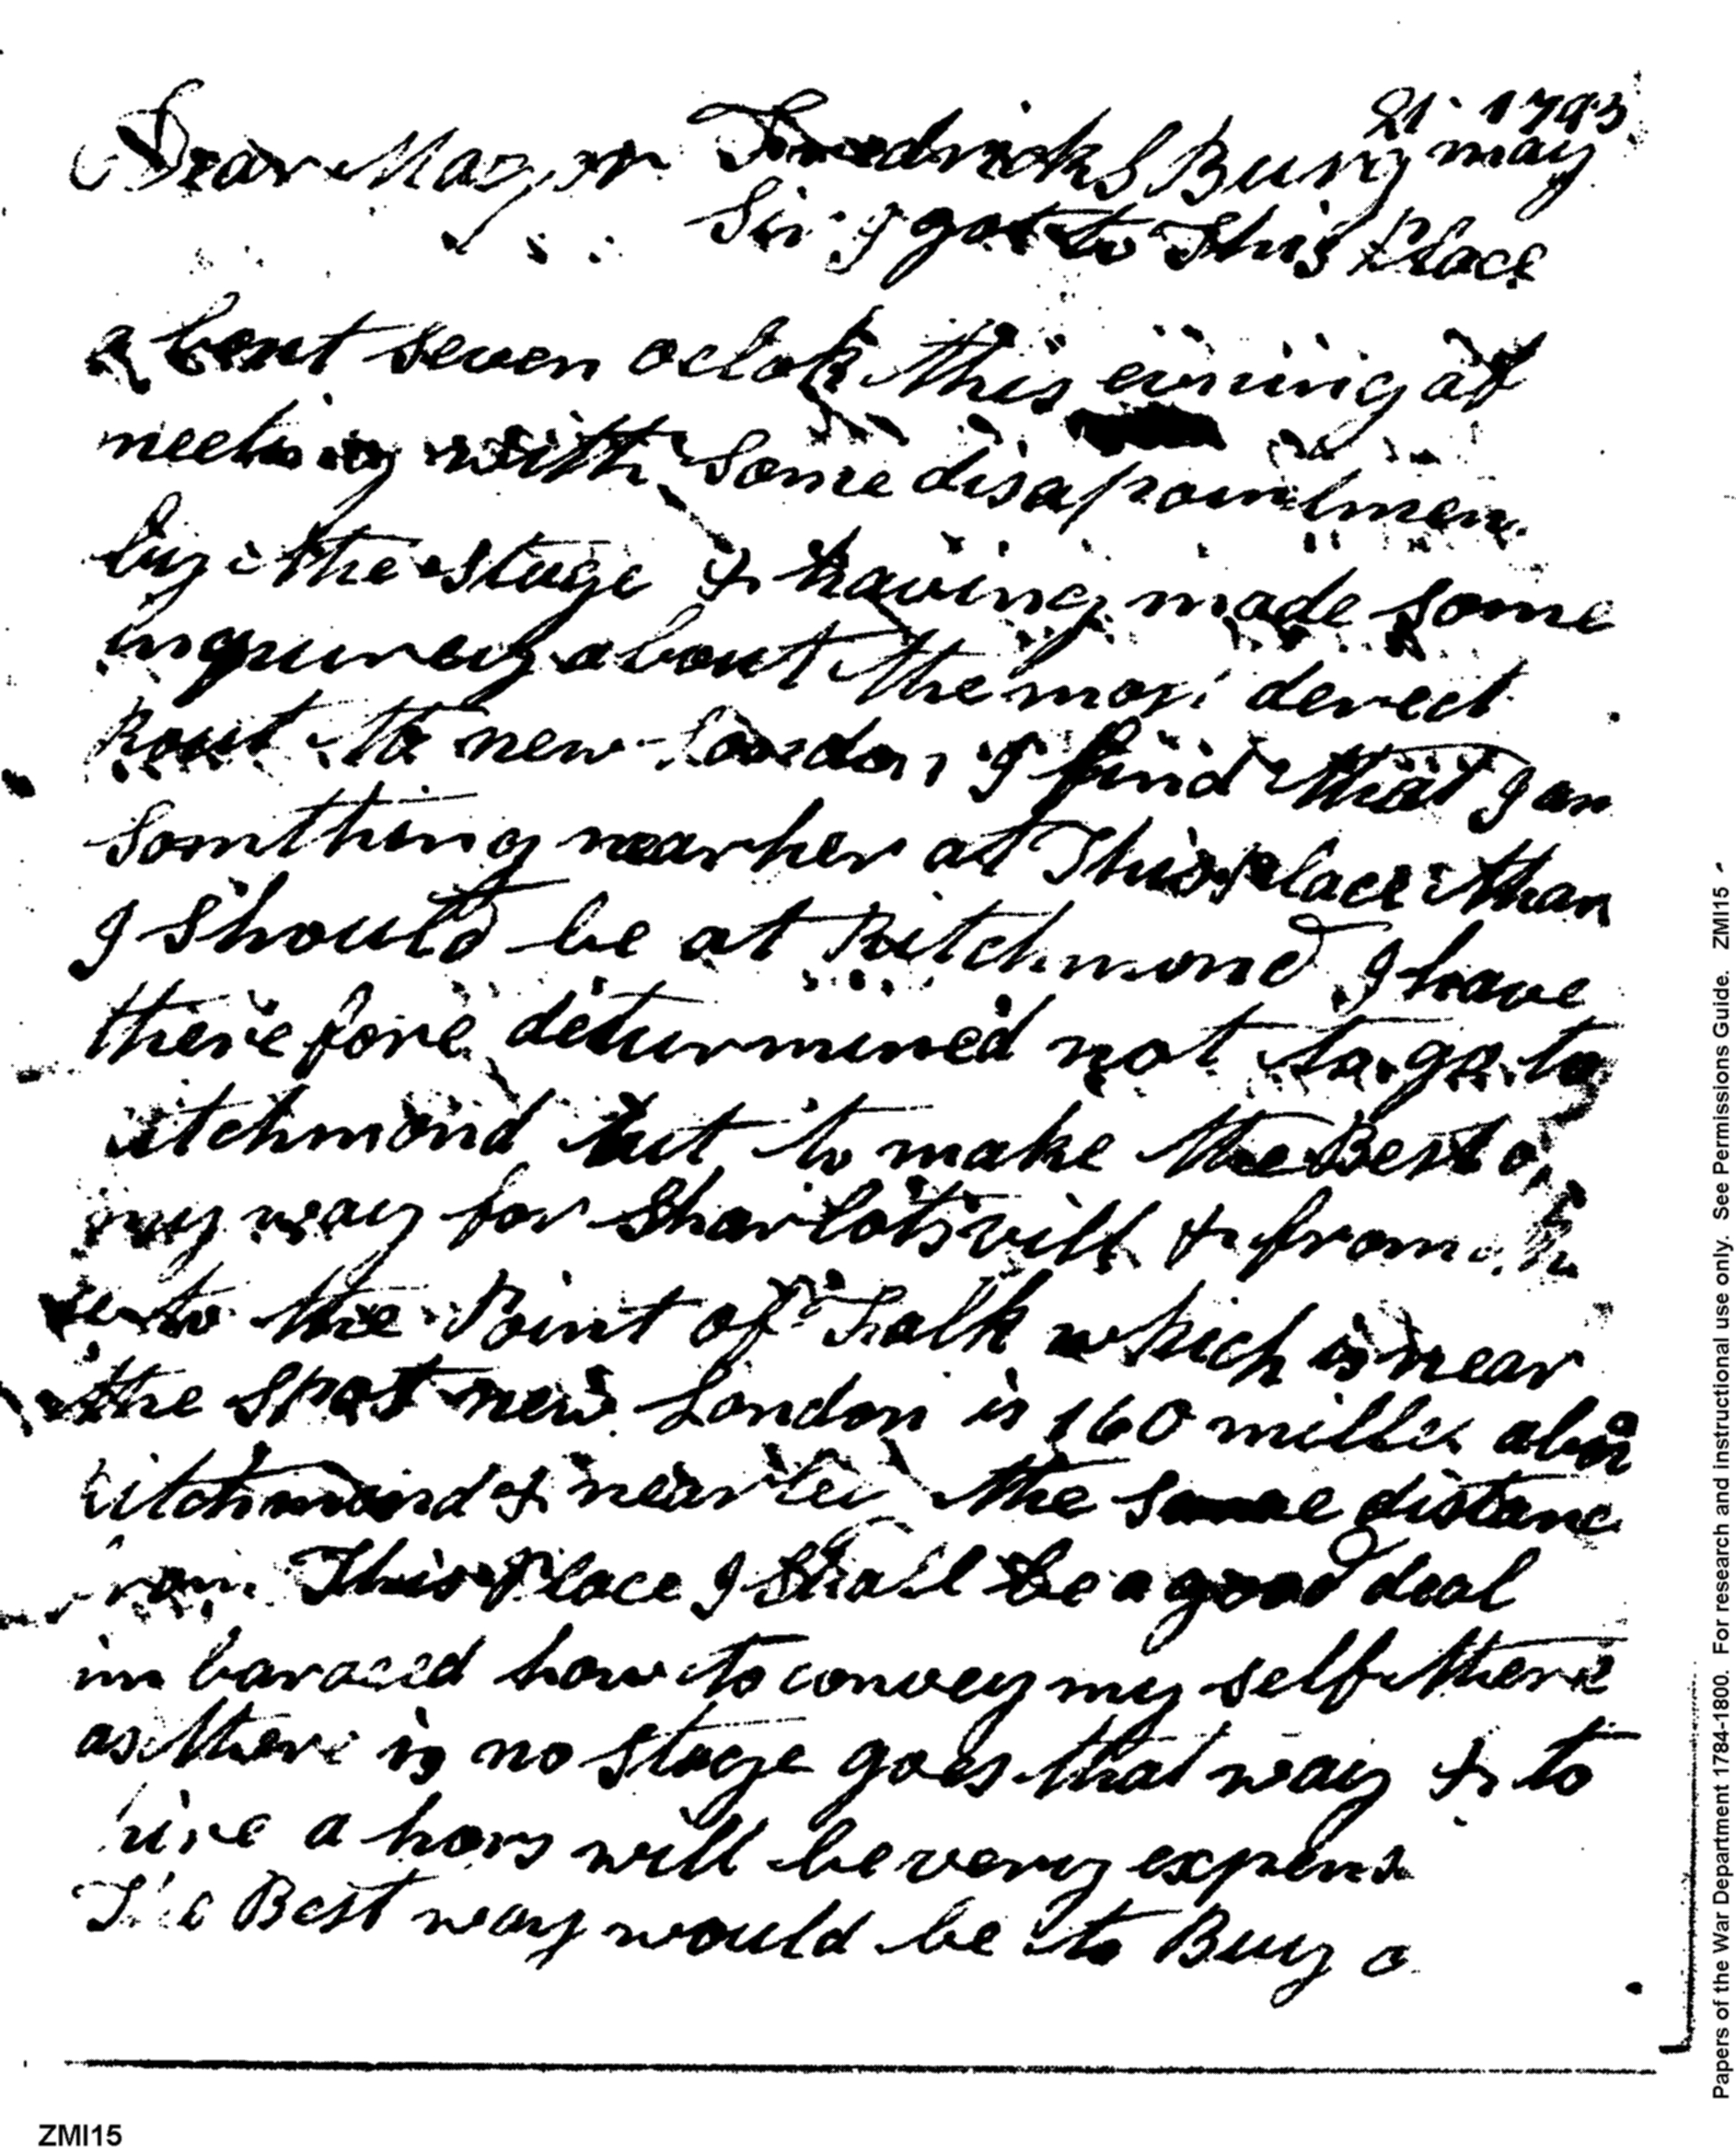 21 1793
Dear Mayjor Fredricks Burg may
Sir I got to This Place
about seven oclok this eivning aft
meeting with some disapointmen
by the stage & having made some
inquirey about the mosi derect
Rout to new London I find that I am
somthing nearher at This place than
I should be at Ritchmond I have
therefore deturmined not to go to
itchmond but to make the Best of
my way for Sharlotsvill & from
to the Point of Falk which is near
the spot new London is 160 milles abov
Ritchmond & near lei the same distanc
from This Place I shall be a good deal
imbarased how to convey my self there
as there is no stage goes that way & to
hire a hors will be very expens
The Best way would be to Buy a
ZMI15
Papers of the War Department 1784-1800. For research and instructional use only. See Permissions Guide. ZMI15